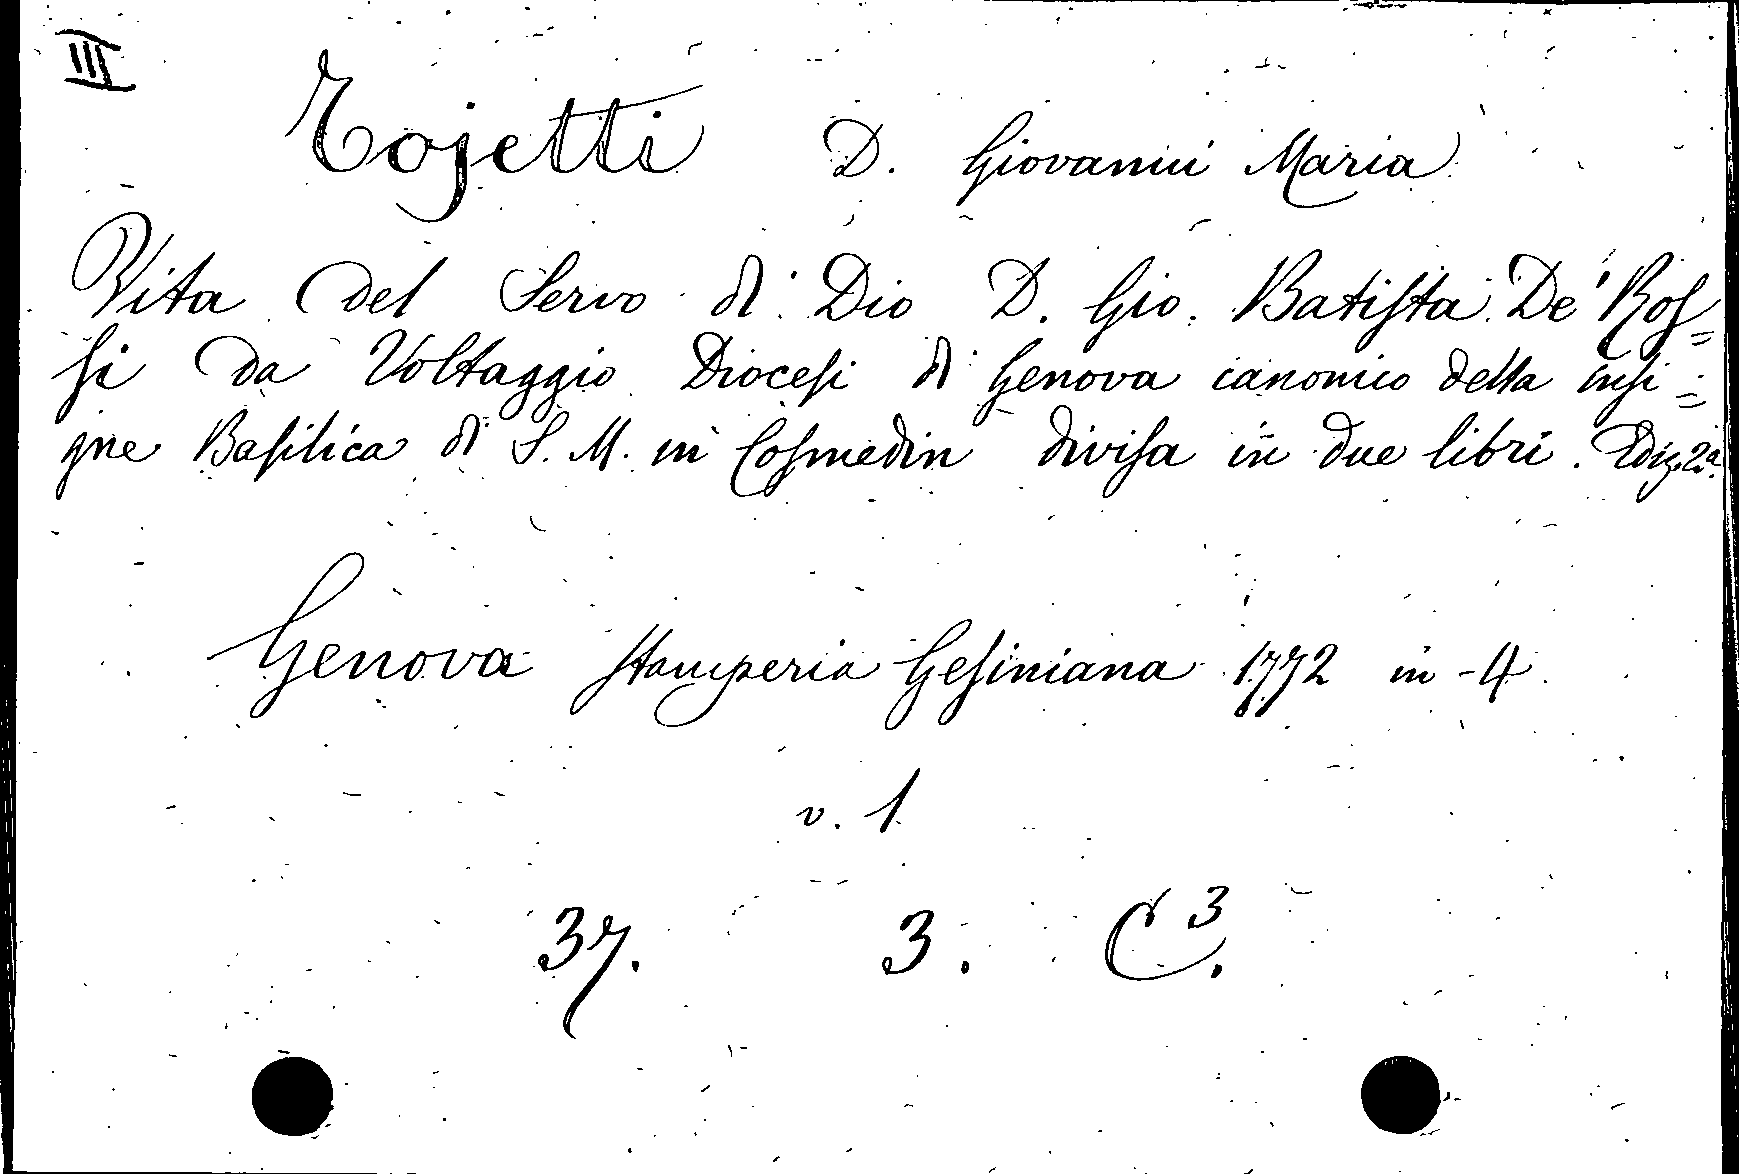 III
Tojetti D. Giovanni Maria
Vita del Servo di Dio D. Gio. Batiſta De' Roſ=
ſi da Voltaggio Dioceſi di Genova canonico della inſi=
gne Baſilica di S. M. in Coſmedin diviſa in due libri. Ediz. 2ª.
Genova ſtamperia Geſiniana 1772 in-4.
v. 1
37. 3. C³.